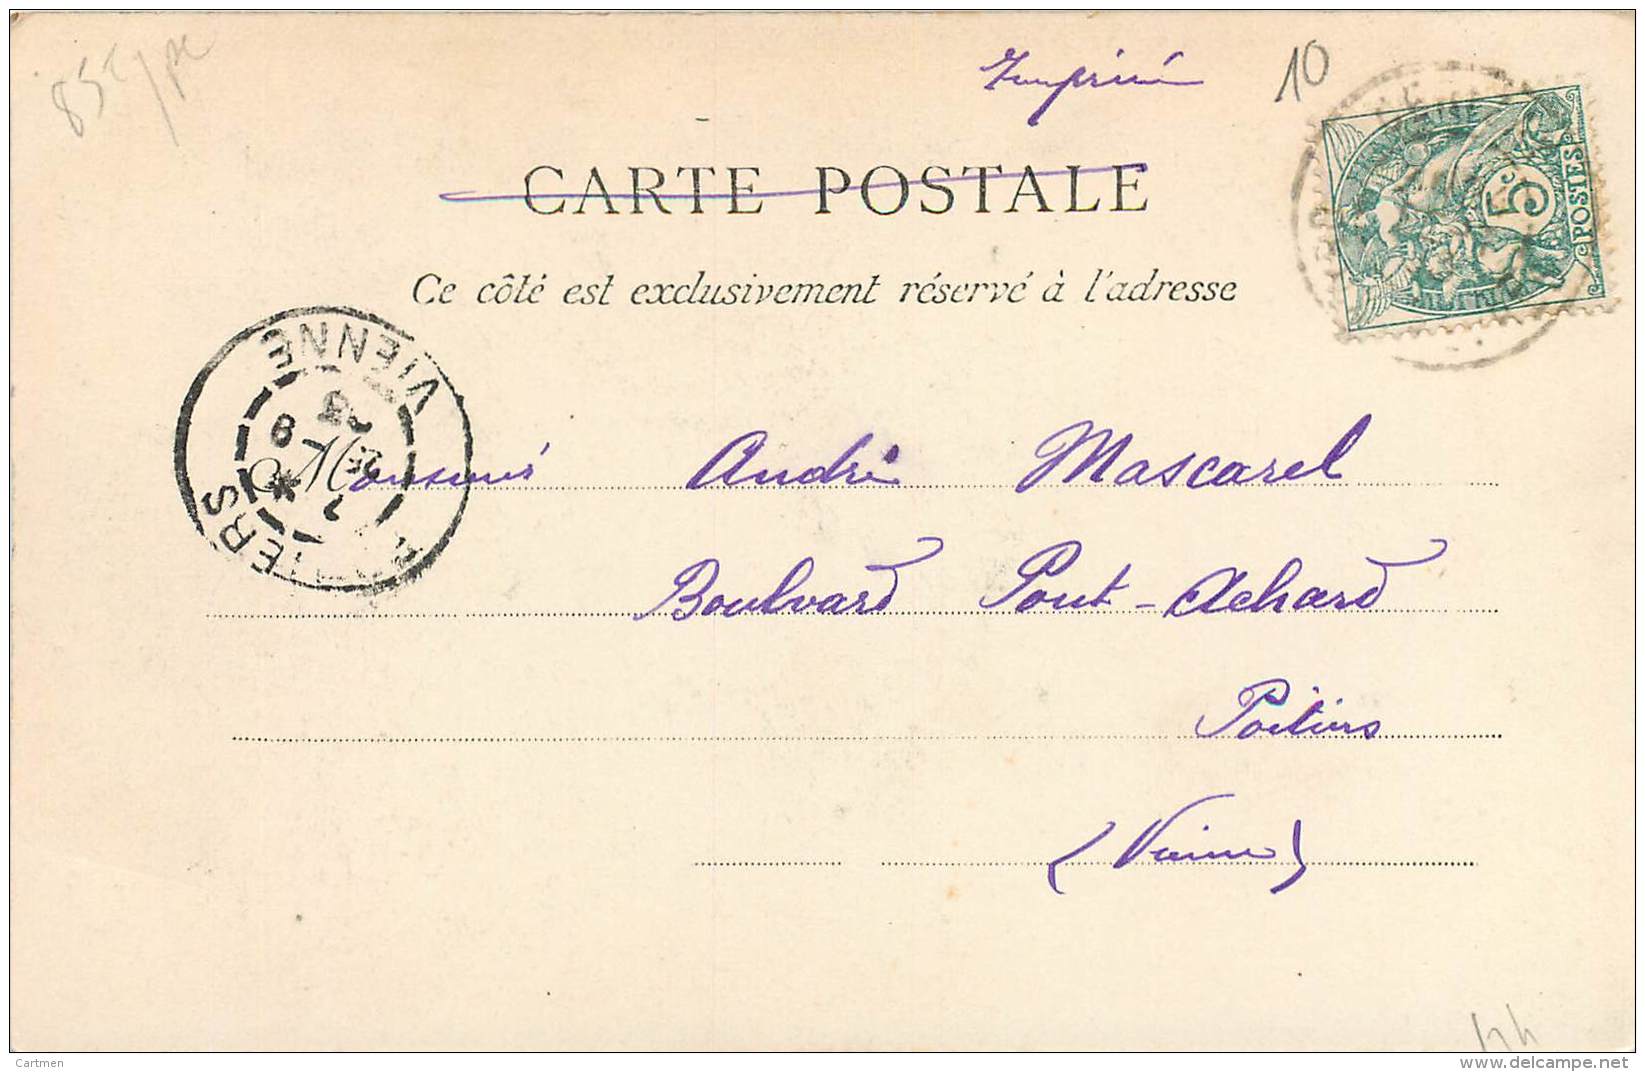 Imprimé
10
CARTE POSTALE
Ce côté est exclusivement réservé à l'adresse
5c
POSTES
VIENNE
Monsieur André Mascarel
Boulvard Pont-Achard
Poitiers
(Vienne)
44
Cartmen
www.delcampe.net